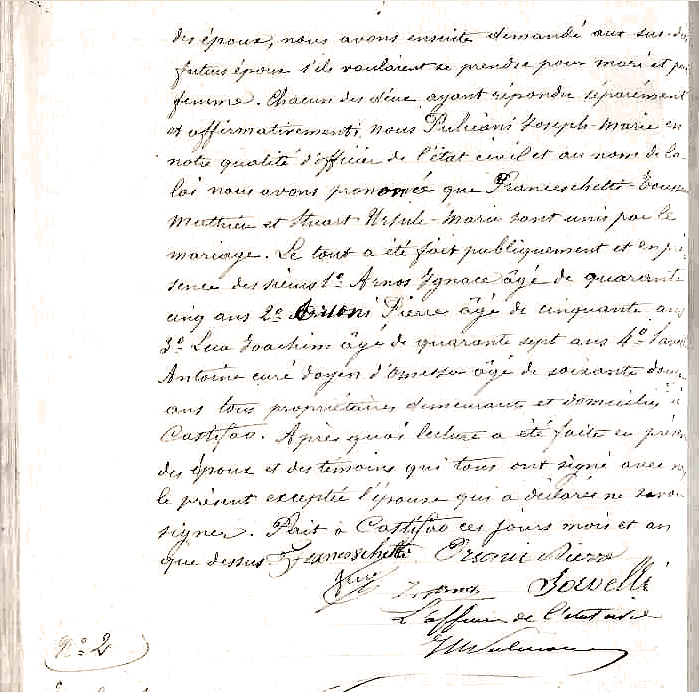 des époux, nous avons ensuite demandé aux sus-dits
futurs époux s'ils voulaient se prendre pour mari et pour
femme. Chacun des deux ayant répondu séparément
et affirmativement, nous Pulicani Joseph-Marie en
notre qualité d'officier de l'état civil et au nom de la
loi nous avons prononcé que Franceschetti-Toussaint
Matthieu et Stuart Ursule-Marie sont unis par le
mariage. Le tout a été fait publiquement et en pré-
sence des sieurs 1º Arnos Ignace âgé de quarante
cinq ans 2º Orsoni Pierre âgé de cinquante ans
3º Luca Joachim âgé de quarante sept ans 4º
Antoine curé doyen d'Omessa âgé de soixante douze
ans tous propriétaires demeurant et domiciliés à
Castifao. Après quoi lecture a été faite en présence
des époux et des témoins qui tous ont signé avec nous
le présent exceptée l'épouse qui a déclaré ne savoir
signer. Fait à Castifao ces jours mois et an
que dessus. Franceschetti Orsoni Pierre
L'officier de l'état civil
Nº 2